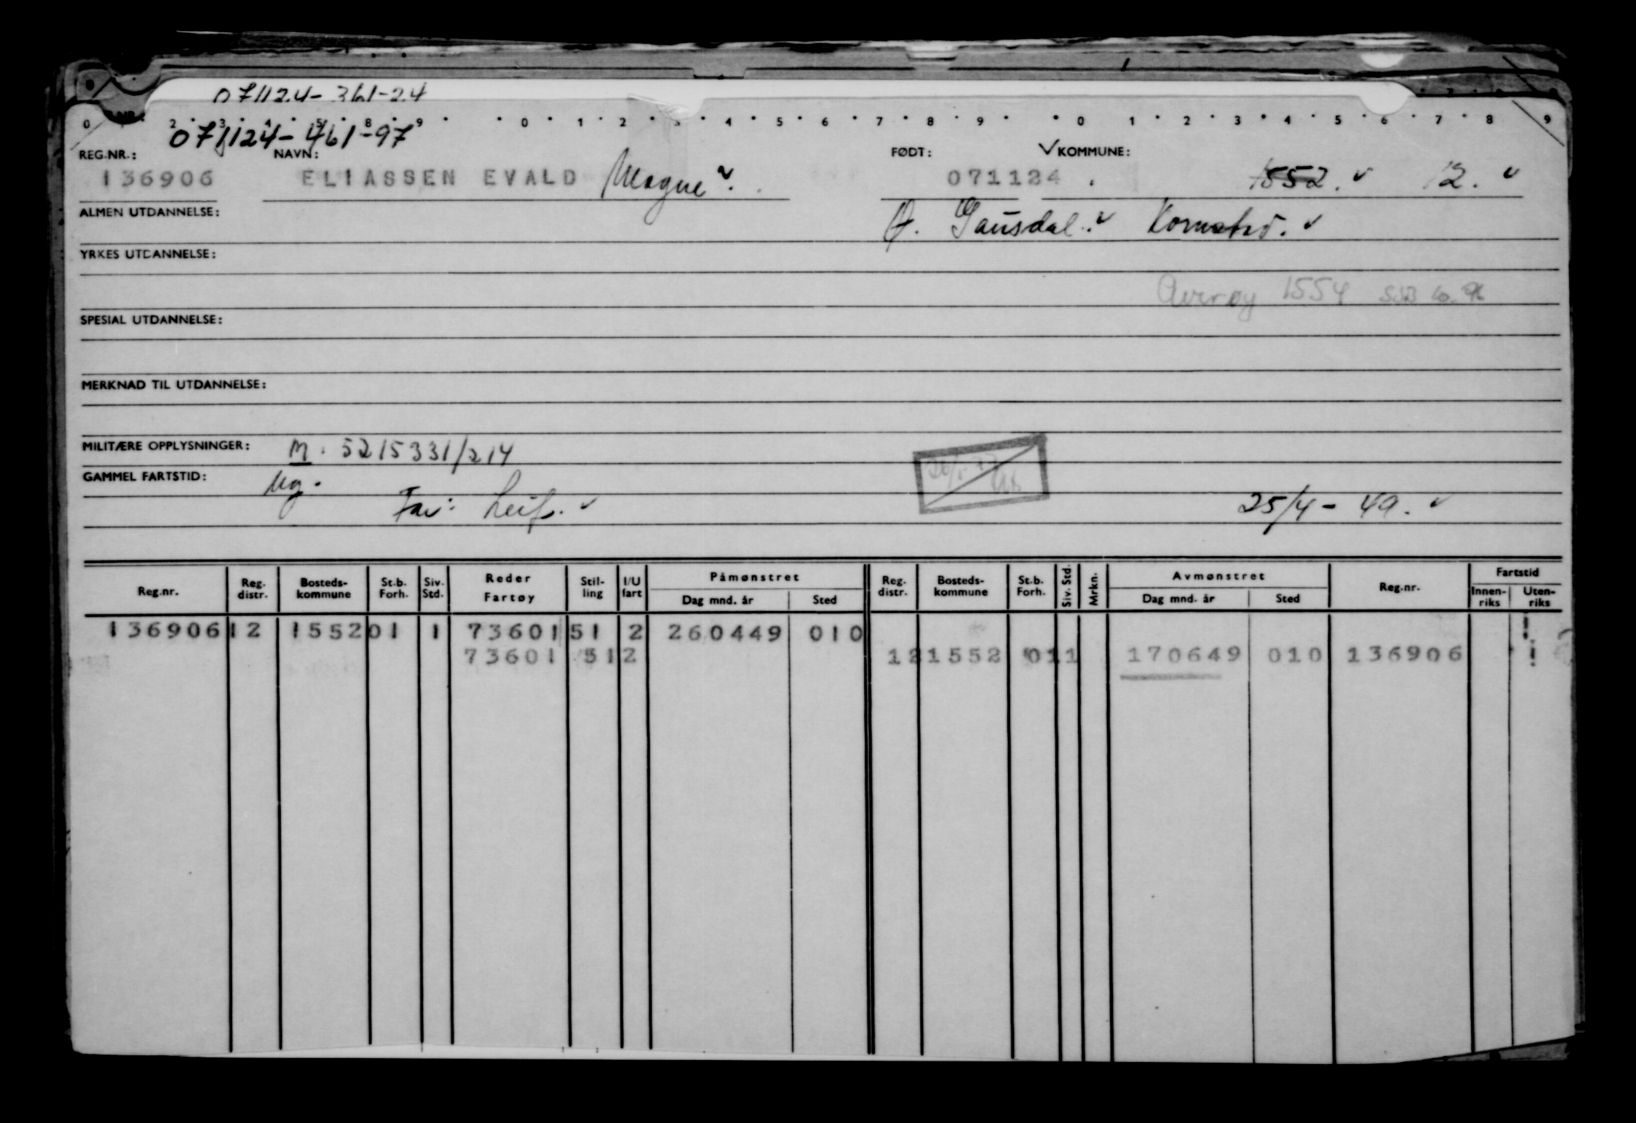 071124-361-24
071124-461-97
REG.NR.: NAVN: FØDT: KOMMUNE:
136906 ELIASSEN EVALD Magne 071124 1552. 12.
ALMEN UTDANNELSE: Ø. Gausdal. Kornstad.
YRKES UTDANNELSE:
Averøy 1554 SSB
SPESIAL UTDANNELSE:
MERKNAD TIL UTDANNELSE:
MILITÆRE OPPLYSNINGER: M. 5215331/214
GAMMEL FARTSTID: Ug.
Far: Leif. 25/4 - 49.
Reg.nr. Reg. distr. Bosteds- kommune St.b. Forh. Siv. Std. Reder Fartøy Stil- ling I/U fart Påmønstret Dag mnd. år Sted Reg. distr. Bosteds- kommune St.b. Forh. Siv. Std. Mrkn. Avmønstret Dag mnd. år Sted Reg.nr. Fartstid Innen- riks Uten- riks
136906 12 1552 01 1 73601 51 2 260449 010
73601 51 2 12 1552 01 1 170649 010 136906